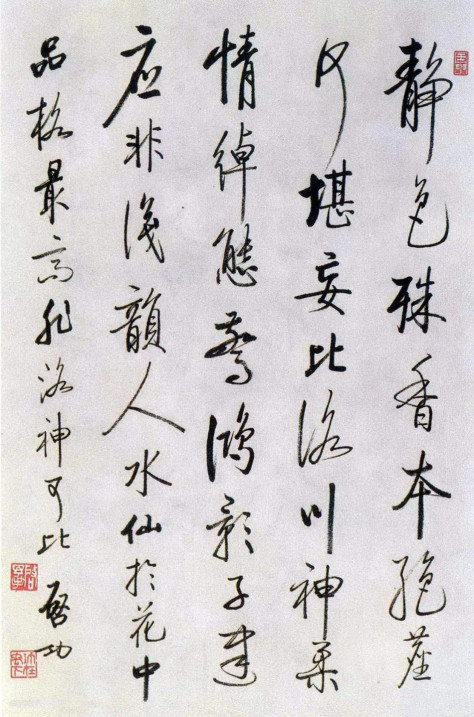 静色殊香本絶塵
何堪妄比洛川神柔
情綽態驚鴻影子建
应非淺韻人水仙於花中
品格最高非洛神可比 啓功